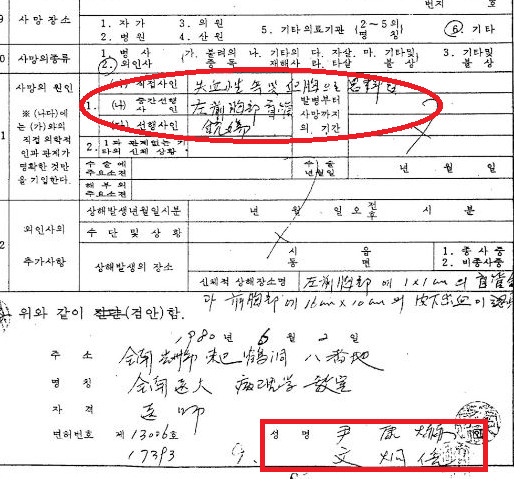 번지 호
9 사망장소
1. 자 가 3. 의 원 5. 기타의료기관 (2~5의 명칭) 6. 기타
2. 병 원 4. 산 원
0 사망의종류
1. 병 사 (가. 불려의 나. 기타의 다. 자살. 마. 기타및) 3. 기타및
2. 외인사 중 독 재해사 라. 타살 불 상 불 상
1 사망의 원인
※ (나다)에는 (가)와의 직접 의학적 인과 관계가 명확한 것만을 기입한다.
1.
(가) 직접사인 失血性
(나) 중간선행사인 左前胸部 盲管
(다) 선행사인 銃傷
발병부터 사망까지의 기간
2. 1과 관계없는 기타의 신체 상황
수술에 주요소견
수술년월일 년 월 일
해부의 주요소견
2 외인사의 추가사항
상해발생년월일시분 년 월 일 오전 후 시 분
수 단 및 상 황
상해발생의 장소 시 읍 동 면
1. 종 사 중
2. 비종사중
신체적 상해장소명 左前胸部에 1×1cm의 盲管
과 前胸部에 16cm×10cm의 皮下出血이
위와 같이 진단(검안)함.
1980 년 6 월 2 일
주 소 八番地
명 칭 全南医大 病理学 教室
자 격 医師
면허번호 제 13006호
17393
성 명 尹
文